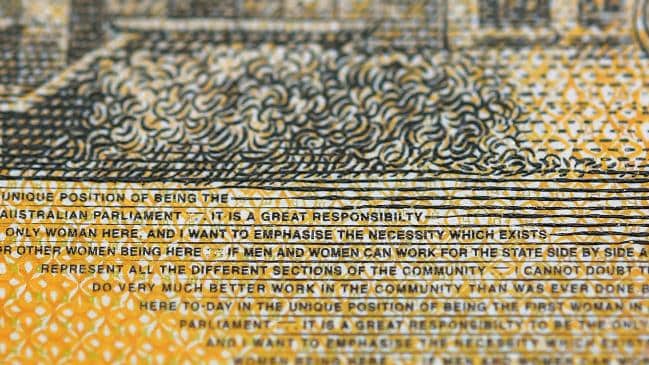 UNIQUE POSITION OF BEING THE
AUSTRALIAN PARLIAMENT ... IT IS A GREAT RESPONSIBILTY
ONLY WOMAN HERE, AND I WANT TO EMPHASISE THE NECESSITY WHICH EXISTS
OR OTHER WOMEN BEING HERE ... IF MEN AND WOMEN CAN WORK FOR THE STATE SIDE BY SIDE A
REPRESENT ALL THE DIFFERENT SECTIONS OF THE COMMUNITY ... CANNOT DOUBT T
DO VERY MUCH BETTER WORK IN THE COMMUNITY THAN WAS EVER DONE B
HERE TO-DAY IN THE UNIQUE POSITION OF BEING THE FIRST WOMAN IN
PARLIAMENT ... IT IS A GREAT RESPONSIBILTY TO BE THE ONLY
AND I WANT TO EMPHASISE THE NECESSITY WHICH EXIST
WOMEN BEING HERE ... IF MEN AND WOMEN CAN WOR